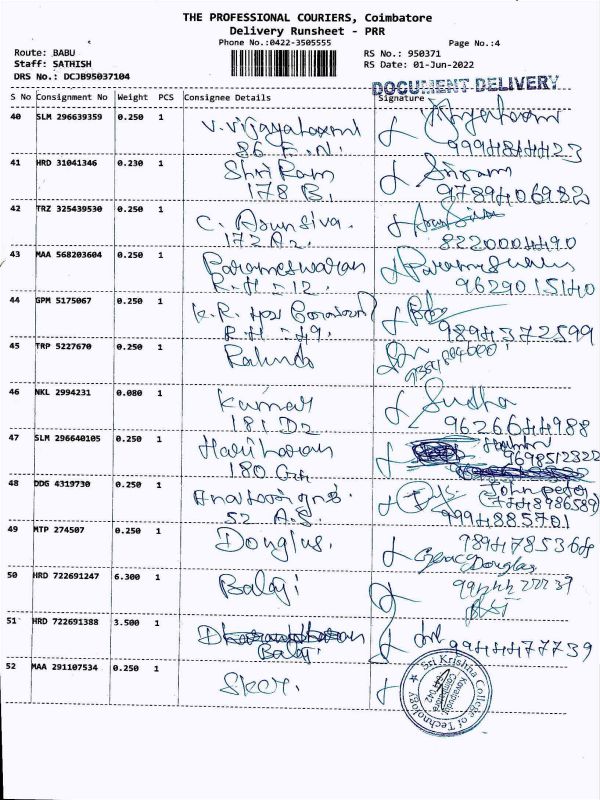 THE PROFESSIONAL COURIERS, Coimbatore
Delivery Runsheet - PRR
Phone No.:0422-3505555
Page No.:4
Route: BABU
RS No.: 950371
Staff: SATHISH
RS Date: 01-Jun-2022
DRS No.: DCJB95037104
DOCUMENT DELIVERY
S No Consignment No Weight PCS Consignee Details Signature
40 SLM 296639359 0.250 1 V. Vijayalaxmi
86 F.N.
41 HRD 31041346 0.230 1 Shri Ram Sriram
178 B. 9789406982
42 TRZ 325439530 0.250 1 C. Arun Siva. Arun Siva
172 A2. 8220004490
43 MAA 568203604 0.250 1 Parameswaran
R.H - 12. 9629015140
44 GPM 5175067 0.250 1 K.R.
R.H - 49. 9894372599
45 TRP 5227670 0.250 1
46 NKL 2994231 0.080 1 Kumar Sudha
181 D2 9626644988
47 SLM 296640105 0.250 1 Hariharan
180 9698512322
48 DDG 4319730 0.250 1 John peter
52 A.S. 9994885701
49 MTP 274507 0.250 1 Donglus. 9894785364
Douglas
50 HRD 722691247 6.300 1 Balaji
51 HRD 722691388 3.500 1 9944477739
Balaji
52 MAA 291107534 0.250 1 SKCT.
Sri Krishna College of Technology
Kovaipudur
Coimbatore
641 042